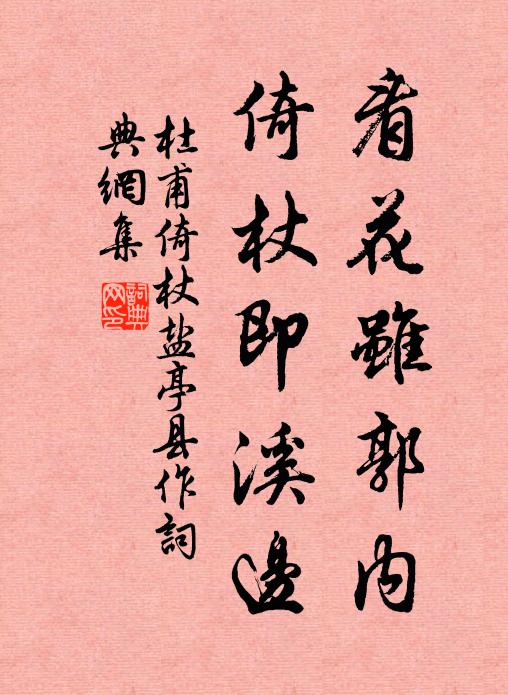 看花雖郭内
倚杖即溪邊
杜甫倚杖盐亭县作詞
典網集
詞典
网印